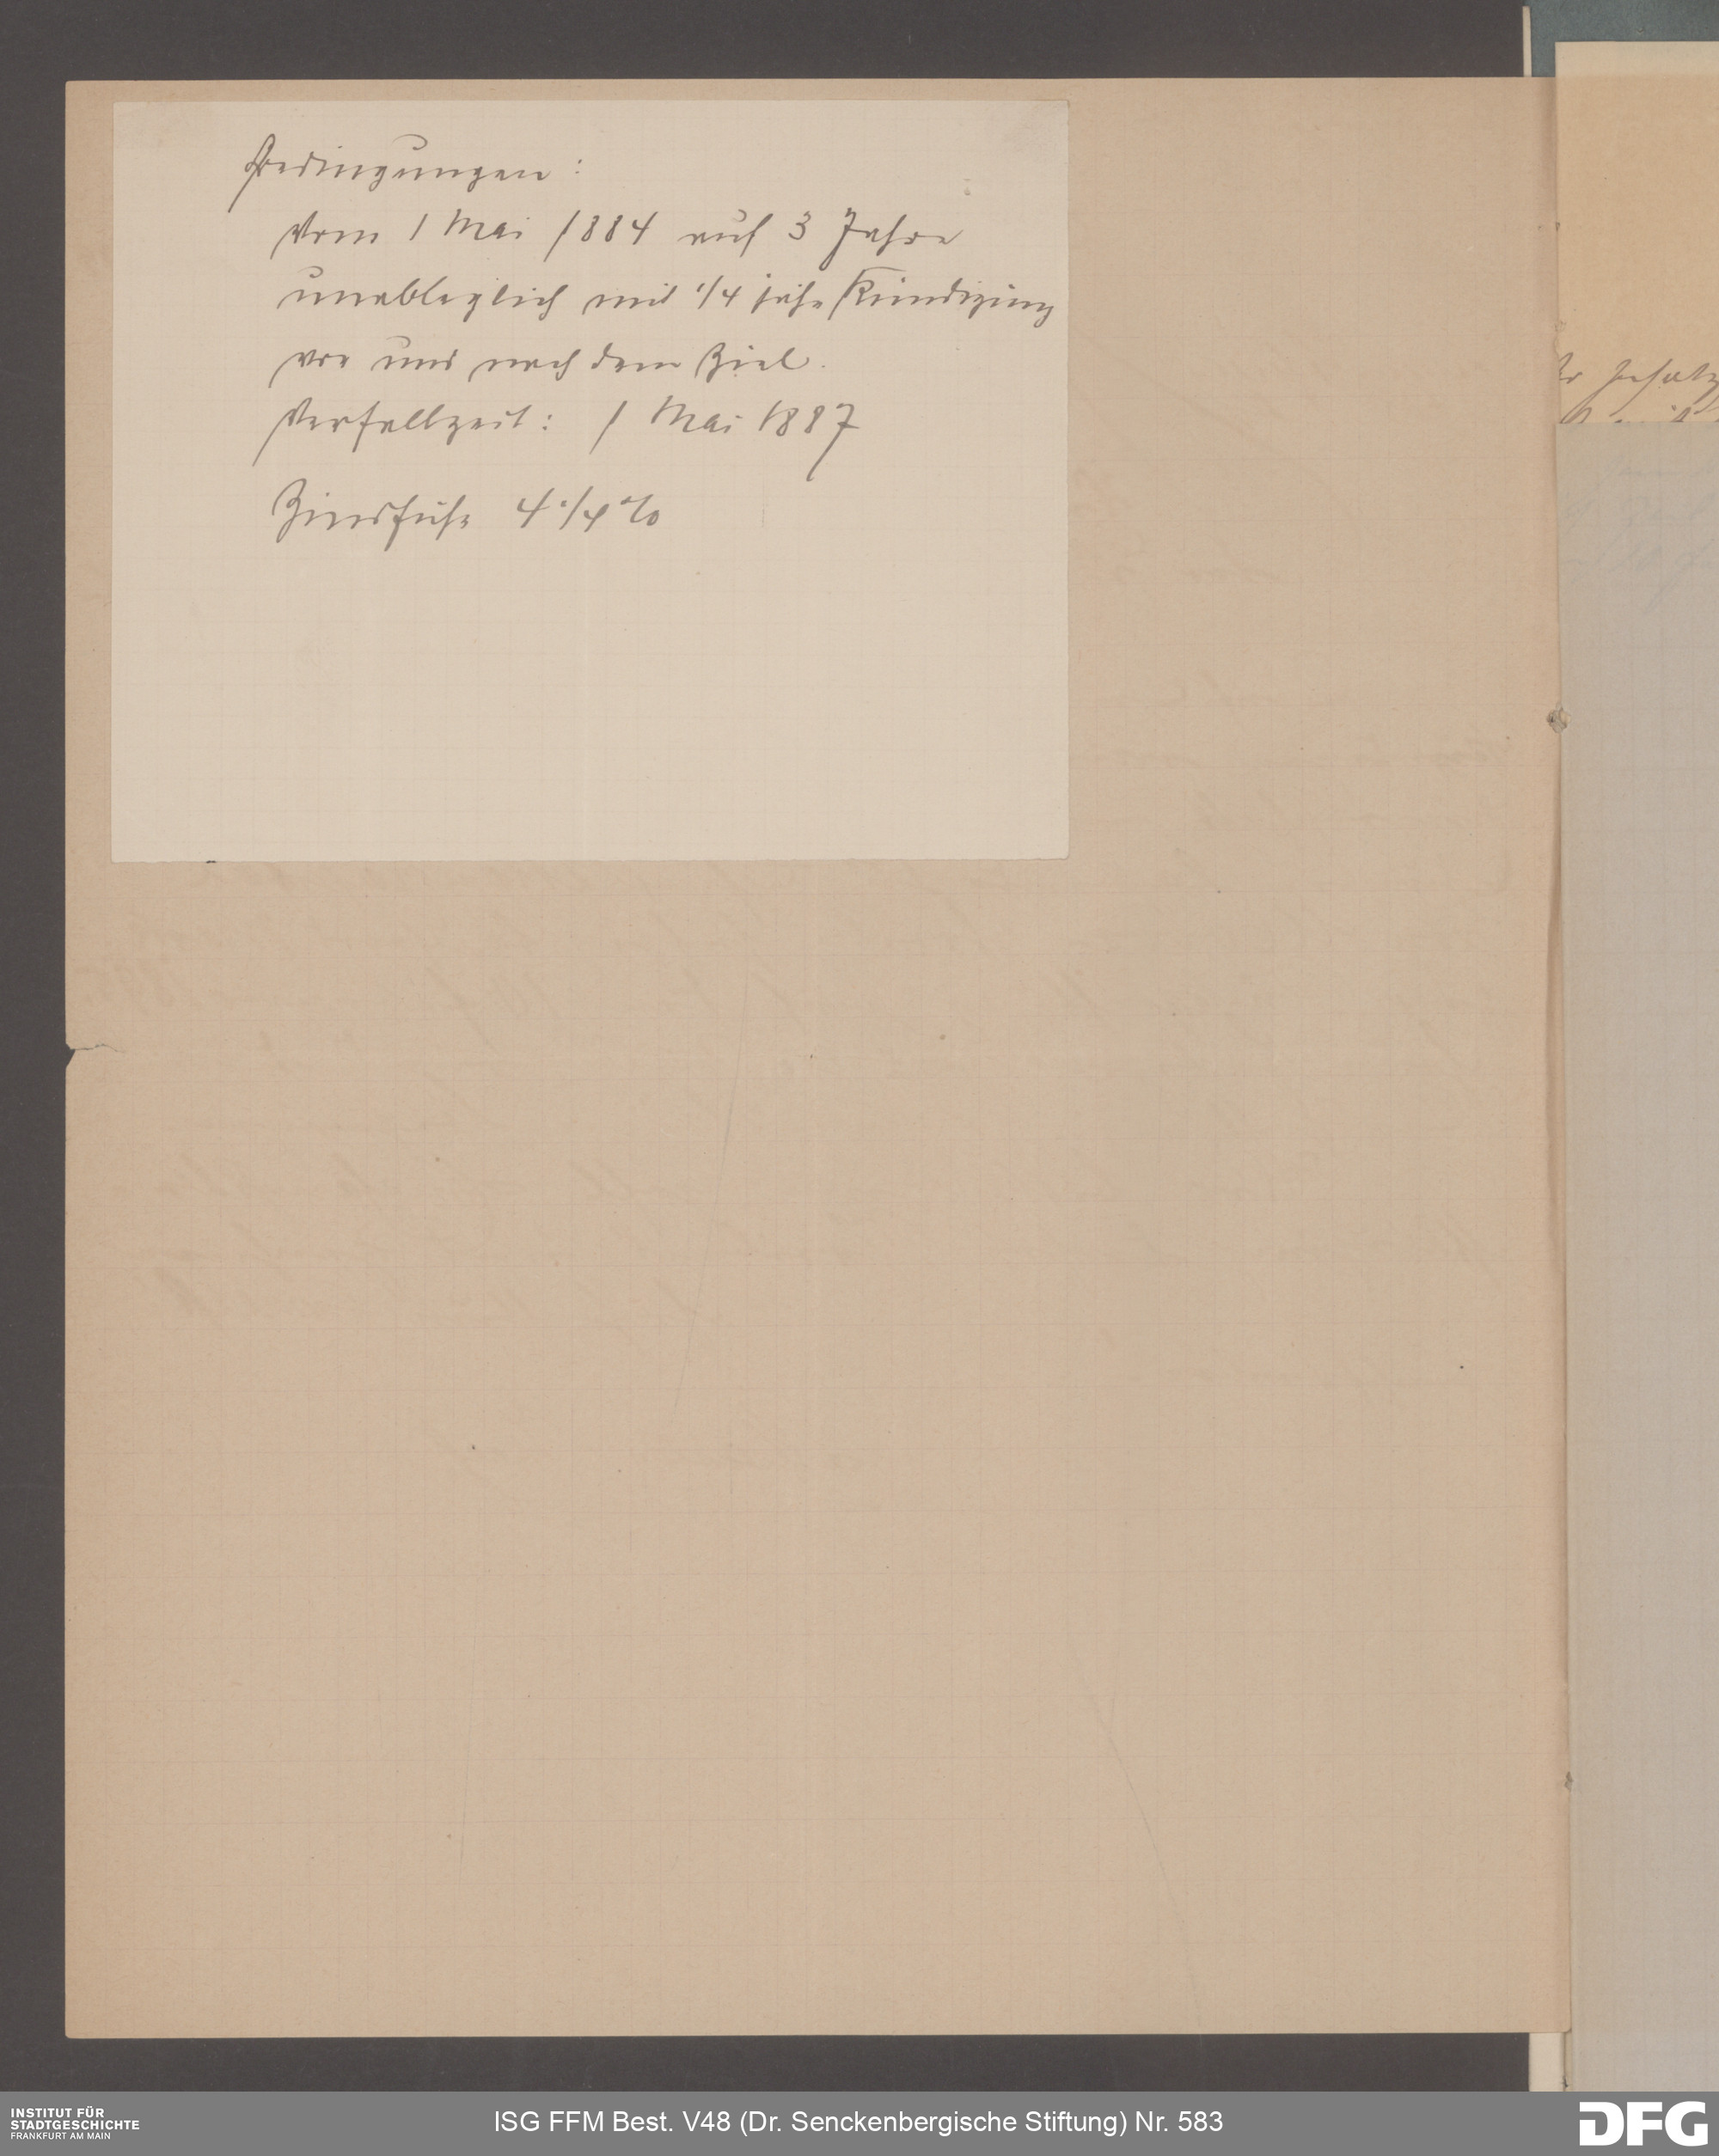 Bedingungen:
Vom 1 Mai 1884 auf 3 Jahre
unableglich mit 1/4 jähr Kündigung
vor und nach dem Ziel.
Verfallzeit: 1 Mai 1887
Zinsfuß 4 1/4 %
INSTITUT FÜR
STADTGESCHICHTE
FRANKFURT AM MAIN
ISG FFM Best. V48 (Dr. Senckenbergische Stiftung) Nr. 583
DFG